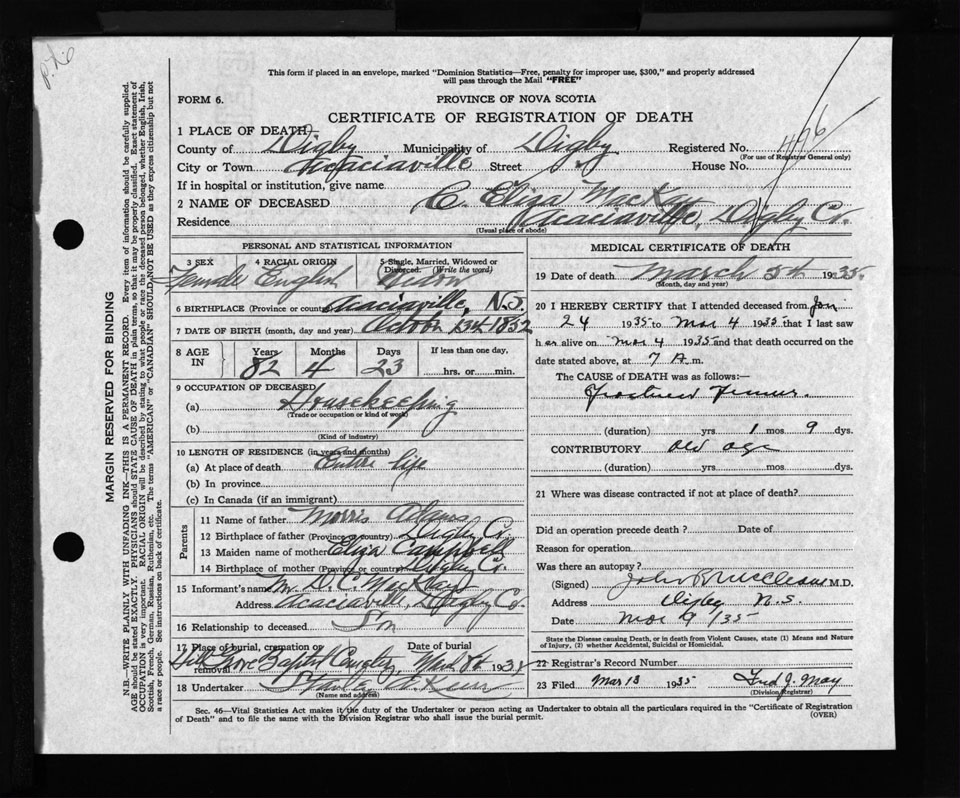 This form if placed in an envelope, marked "Dominion Statistics—Free, penalty for improper use, $300," and properly addressed
will pass through the Mail "FREE"
FORM 6.
PROVINCE OF NOVA SCOTIA
CERTIFICATE OF REGISTRATION OF DEATH
1 PLACE OF DEATH
County of Digby Municipality of Digby Registered No. 496
(For use of Registrar General only)
City or Town Acaciaville Street House No.
If in hospital or institution, give name
2 NAME OF DECEASED C. Eliza MacKay
Residence Acaciaville, Digby Co.
(Usual place of abode)
PERSONAL AND STATISTICAL INFORMATION
3 SEX 4 RACIAL ORIGIN 5 Single, Married, Widowed or
Divorced. (Write the word)
Female English Widow
6 BIRTHPLACE (Province or country) Acaciaville, N.S.
7 DATE OF BIRTH (month, day and year) 1852
8 AGE IN Years Months Days If less than one day,
82 4 23 hrs. or min.
9 OCCUPATION OF DECEASED
(a) Housekeeping
(Trade or occupation or kind of work)
(b)
(Kind of industry)
10 LENGTH OF RESIDENCE (in years and months)
(a) At place of death Entire life
(b) In province
(c) In Canada (if an immigrant)
Parents
11 Name of father Morris Adams
12 Birthplace of father (Province or country) Digby Co.
13 Maiden name of mother Eliza Campbell
14 Birthplace of mother (Province or country) Digby Co.
15 Informant's name Mr. D. C. MacKay
Address Acaciaville, Digby Co.
16 Relationship to deceased Son
17 Place of burial, cremation or removal Date of burial
Hill Grove Baptist Mar 8th 1935
18 Undertaker Stanley
(Name and address)
MEDICAL CERTIFICATE OF DEATH
19 Date of death March 5th 1935.
(Month, day and year)
20 I HEREBY CERTIFY that I attended deceased from Jan
24 1935 to Mar 4 1935 that I last saw
her alive on Mar 4 1935 and that death occurred on the
date stated above, at 7 A.m.
The CAUSE OF DEATH was as follows:—
Fractured Femur.
(duration) yrs. 1 mos. 9 dys.
CONTRIBUTORY old age
(duration) yrs. mos. dys.
21 Where was disease contracted if not at place of death?
Did an operation precede death? Date of
Reason for operation
Was there an autopsy?
(Signed) M.D.
Address Digby N.S.
Date Mar 9/35
State the Disease causing Death, or in death from Violent Causes, state (1) Means and Nature
of Injury, (2) whether Accidental, Suicidal or Homicidal.
22 Registrar's Record Number
23 Filed Mar 13 1935 Fred J. May
(Division Registrar)
Sec. 46—Vital Statistics Act makes it the duty of the Undertaker or person acting as Undertaker to obtain all the particulars required in the "Certificate of Registration
of Death" and to file the same with the Division Registrar who shall issue the burial permit.
(OVER)
MARGIN RESERVED FOR BINDING
N.B.—WRITE PLAINLY WITH UNFADING INK—THIS IS A PERMANENT RECORD. Every item of information should be carefully supplied.
AGE should be stated EXACTLY. PHYSICIANS should STATE CAUSE OF DEATH in plain terms, so that it may be properly classified. Exact statement of
OCCUPATION is very important. RACIAL ORIGIN will be described by stating to what people or race the deceased person belonged, whether English, Irish,
Scottish, French, German, Russian, Ruthenian, etc. The terms "AMERICAN" or "CANADIAN" SHOULD NOT BE USED as they express citizenship but not
a race or people. See instructions on back of certificate.